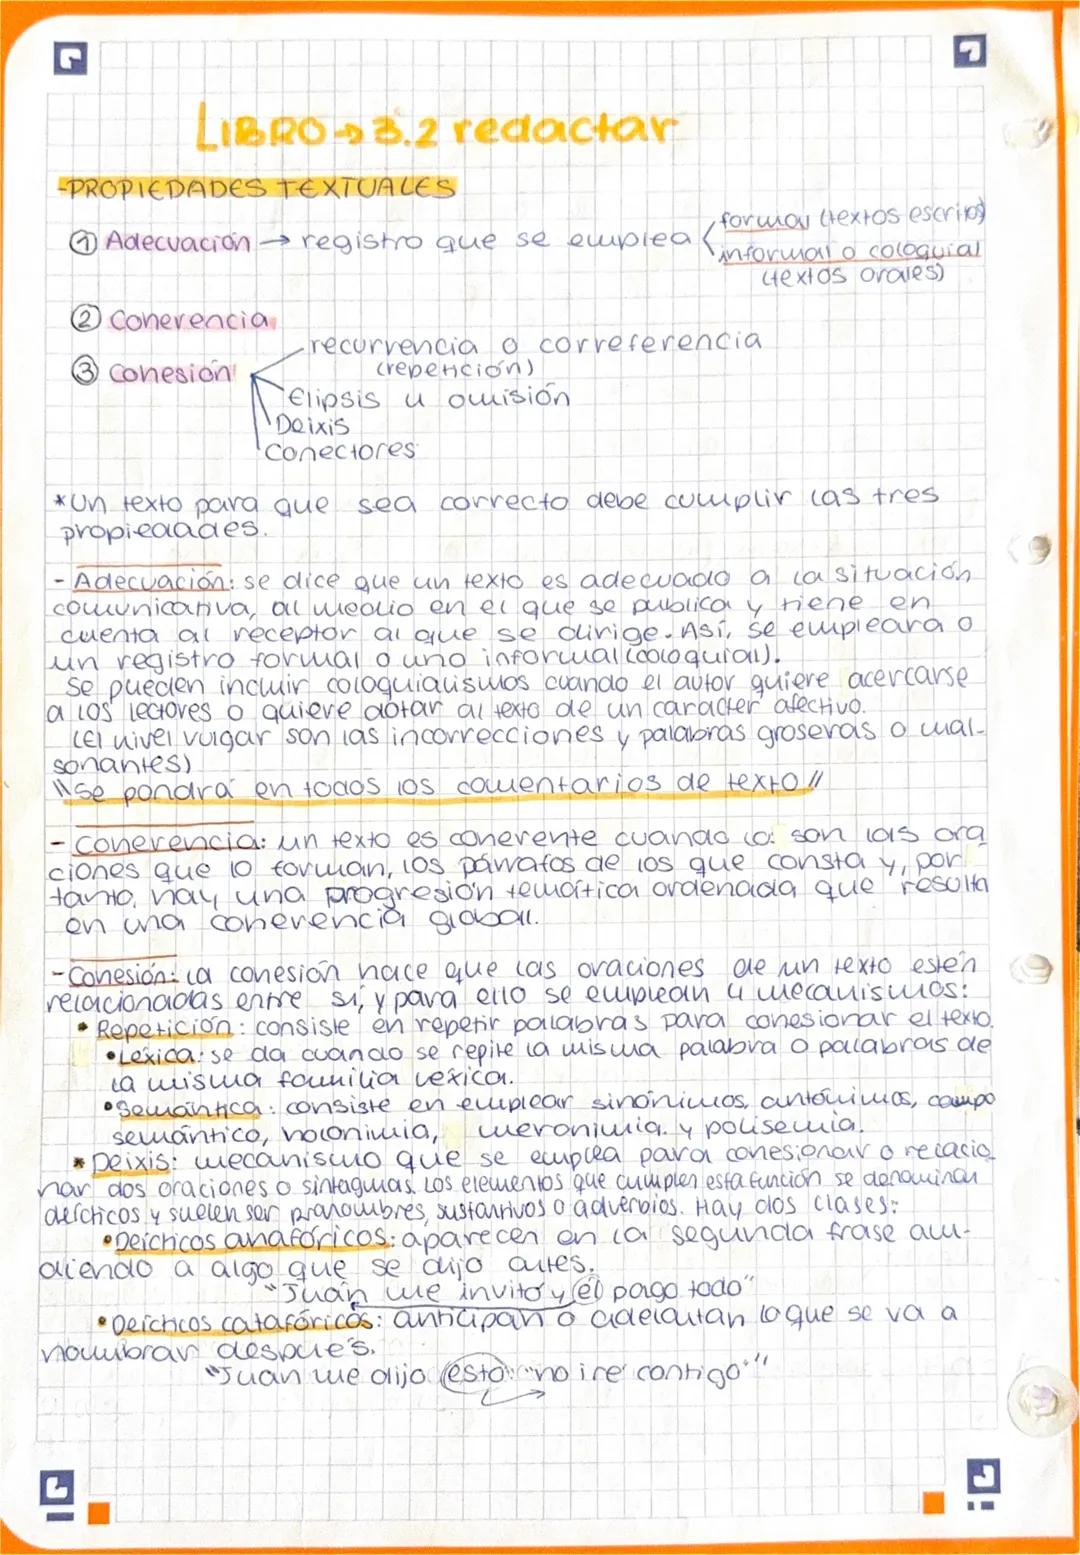 LIBRO → 3.2 redactar
-PROPIEDADES TEXTUALES
① Adecuación → registro que se emplea
formal (textos escritos)
informal o coloquial
(textos orales)
② Coherencia
③ Cohesión
recurrencia o correferencia
(repetición)
Elipsis u omisión
Deixis
Conectores
*Un texto para que sea correcto debe cumplir las tres
propiedades.
- Adecuación: se dice que un texto es adecuado a la situación
comunicativa, al medio en el que se publica y tiene en
cuenta al receptor al que se dirige. Así, se empleara o
un registro formal o uno informal (coloquial).
Se pueden incluir coloquialismos cuando el autor quiere acercarse
a los lectores o quiere dotar al texto de un carácter afectivo.
(El nivel vulgar son las incorrecciones y palabras groseras o mal-
sonantes)
\\Se pondrá en todos los comentarios de texto//
- Coherencia: un texto es coherente cuando lo son las ora
ciones que lo forman, los párrafos de los que consta y, por
tanto, hay una progresión temática ordenada que resulta
en una coherencia global.
-Cohesión: la cohesión hace que las oraciones de un texto estén
relacionadas entre sí, y para ello se emplean 4 mecanismos:
• Repetición: consiste en repetir palabras para cohesionar el texto.
•Léxica: se da cuando se repite la misma palabra o palabras de
la misma familia léxica.
•Semántica: consiste en emplear sinónimos, antónimos, campo
semántico, holonimia, meronimia y polisemia.
* Deixis: mecanismo que se emplea para cohesionar o relacio
nar dos oraciones o sintagmas. Los elementos que cumplen esta función se denominan
deícticos y suelen ser pronombres, sustantivos o adverbios. Hay dos clases:
•Deícticos anafóricos: aparecen en la segunda frase alu-
diendo a algo que se dijo antes.
"Juan me invitó y él pago todo"
•Deícticos catafóricos: anticipan o adelantan lo que se va a
nombrar después.
"Juan me dijo esto: "no iré contigo""